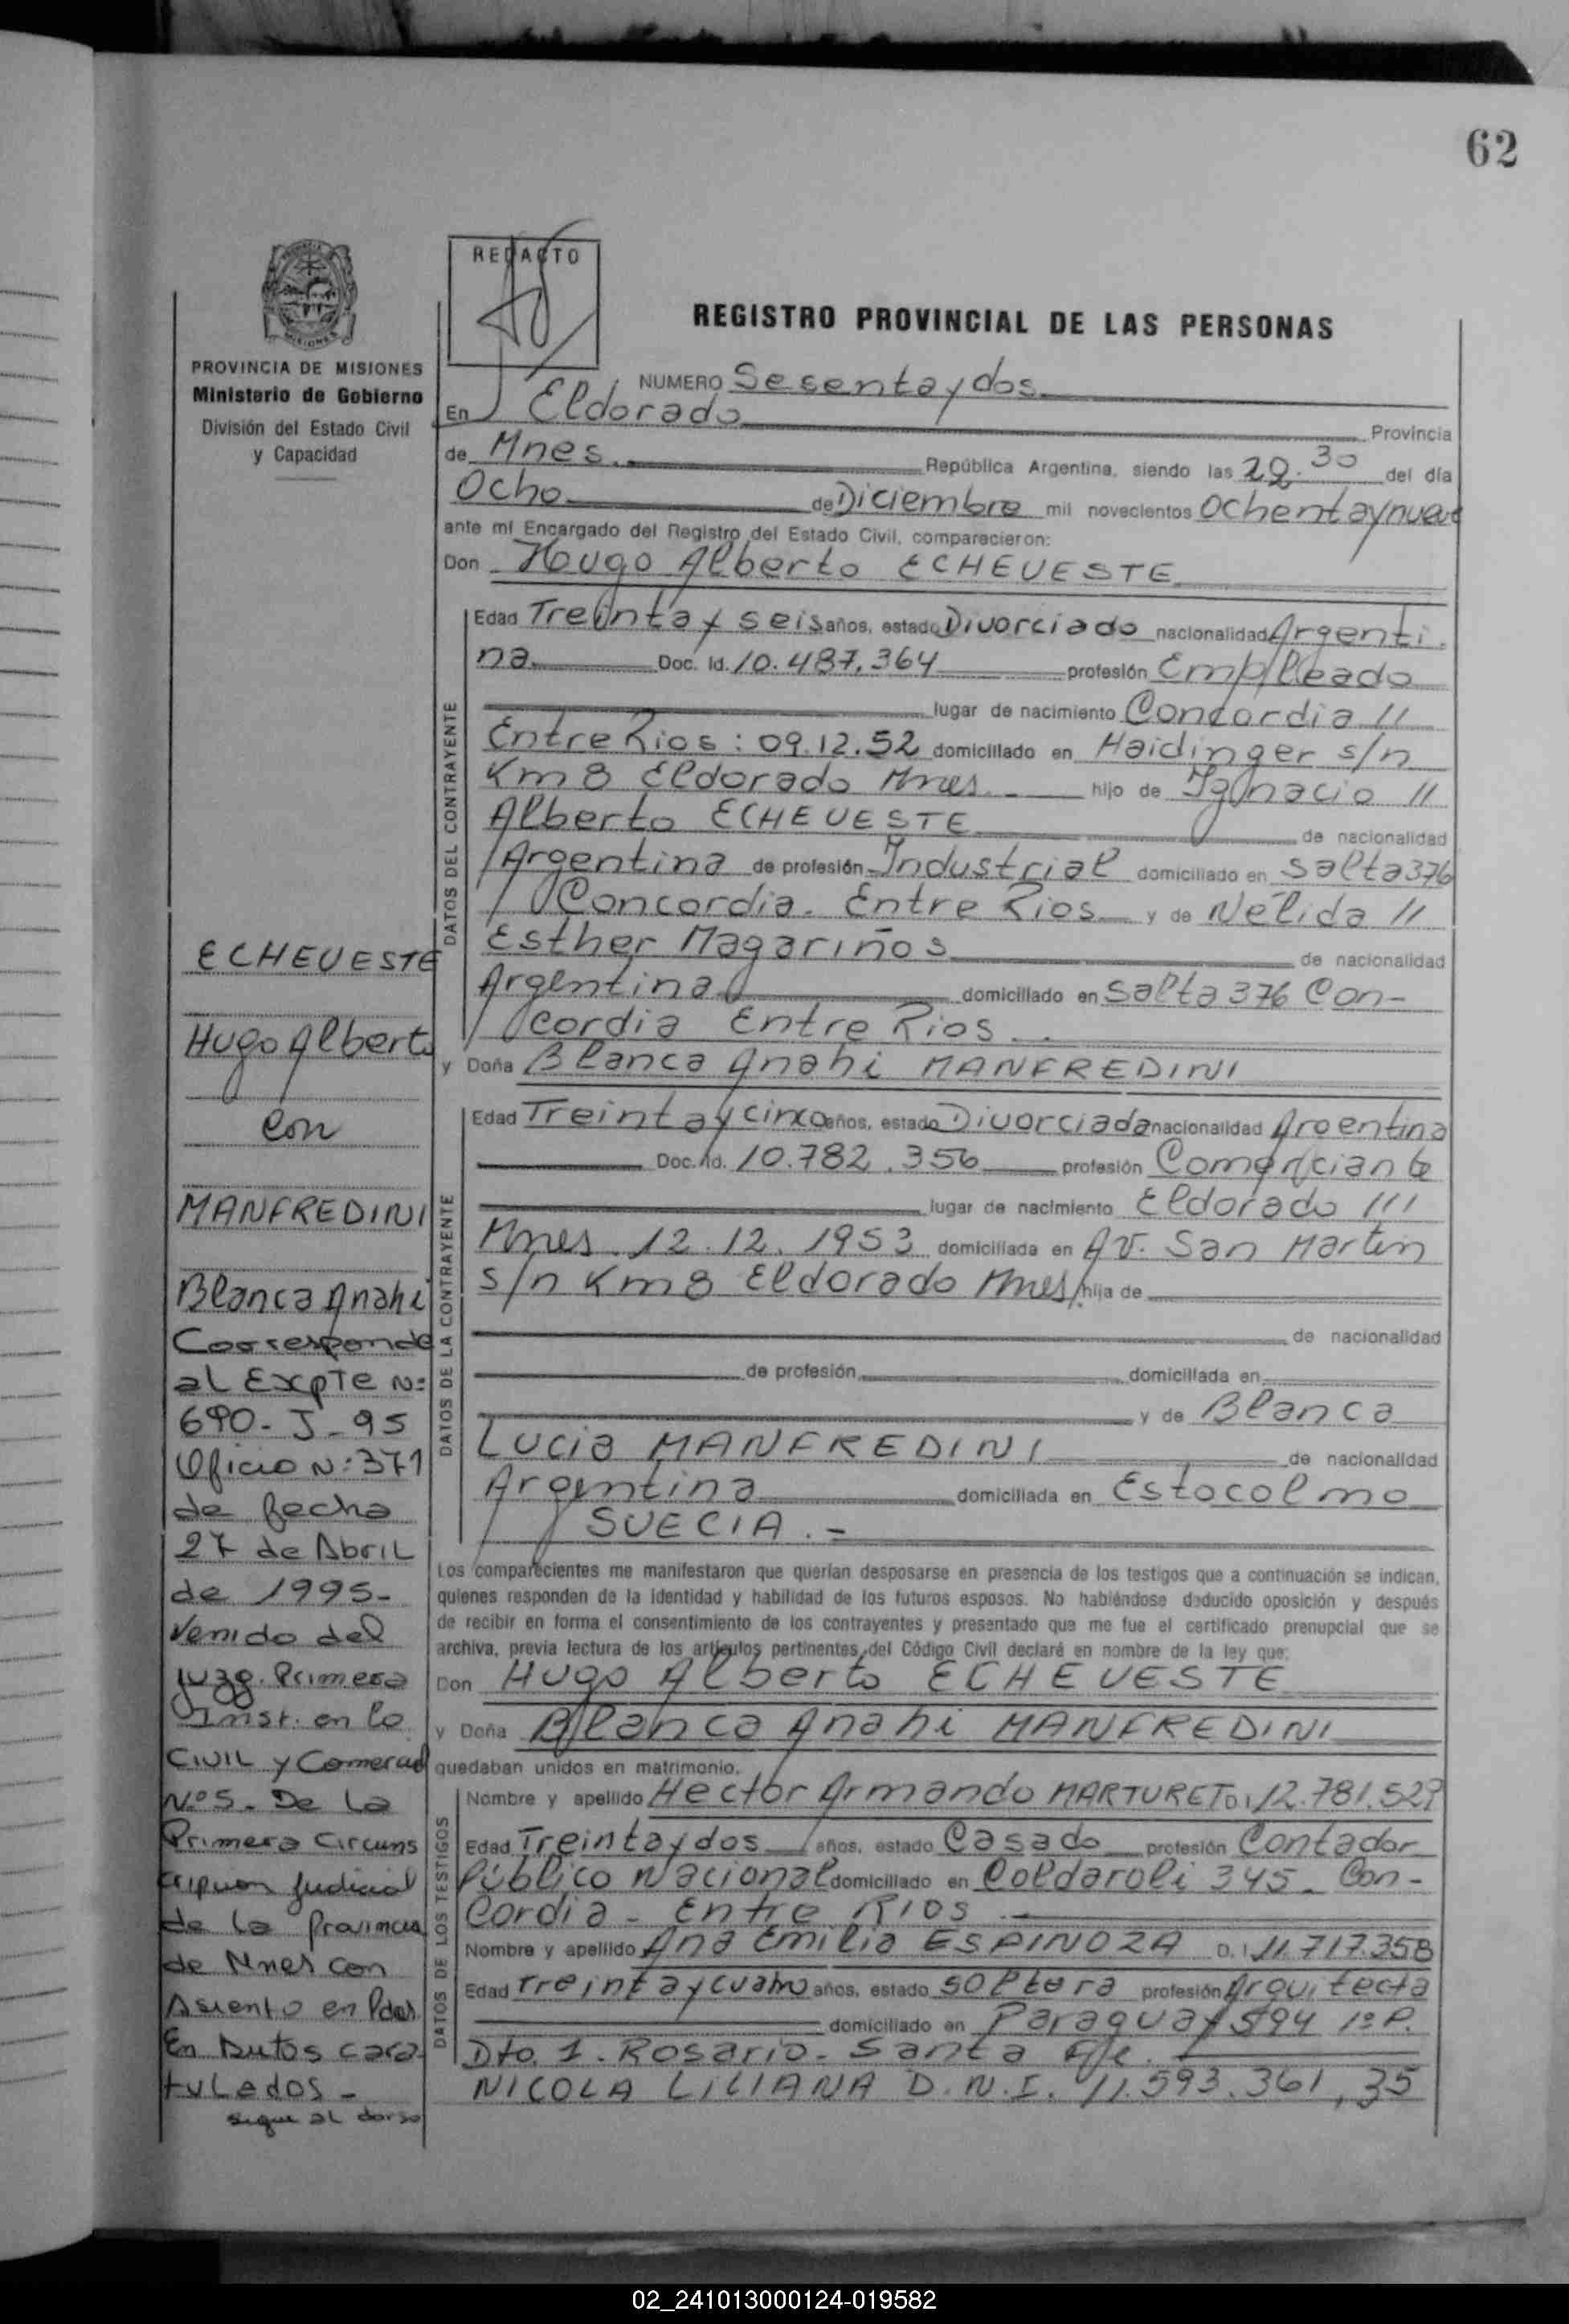 62
REDACTO
REGISTRO PROVINCIAL DE LAS PERSONAS
MISIONES
PROVINCIA DE MISIONES
Ministerio de Gobierno
División del Estado Civil
y Capacidad
NUMERO Sesentaydos
En Eldorado Provincia
de Mnes. República Argentina, siendo las 20.30 del día
Ocho de Diciembre mil novecientos Ochentaynueve
ante mí Encargado del Registro del Estado Civil, comparecieron:
Don Hugo Alberto ECHEVESTE
DATOS DEL CONTRAYENTE
Edad Treinta y seis años, estado Divorciado nacionalidad Argenti.
na. Doc. Id. 10.487.364 profesión Empleado
lugar de nacimiento Concordia //
Entre Rios : 09.12.52 domiciliado en Haidinger s/n
Km 8 Eldorado Mnes. hijo de Ignacio //
Alberto ECHEVESTE de nacionalidad
Argentina de profesión Industrial domiciliado en Salta 376
Concordia. Entre Rios y de Nélida //
Esther Magariños de nacionalidad
Argentina domiciliado en Salta 376 Con-
cordia Entre Rios.
y Doña Blanca Anahi MANFREDINI
DATOS DE LA CONTRAYENTE
Edad Treintaycinco años, estado Divorciada nacionalidad Argentina
Doc. Id. 10.782.356 profesión Comerciante
lugar de nacimiento Eldorado ///
Mnes. 12.12.1953 domiciliada en Av. San Martin
s/n Km 8 Eldorado Mnes. hija de
de nacionalidad
de profesión domiciliada en
y de Blanca
Lucia MANFREDINI de nacionalidad
Argentina domiciliada en Estocolmo
SUECIA.-
Los comparecientes me manifestaron que querían desposarse en presencia de los testigos que a continuación se indican,
quienes responden de la identidad y habilidad de los futuros esposos. No habiéndose deducido oposición y después
de recibir en forma el consentimiento de los contrayentes y presentado que me fue el certificado prenupcial que se
archiva, previa lectura de los artículos pertinentes del Código Civil declaré en nombre de la ley que:
Don Hugo Alberto ECHEVESTE
y Doña Blanca Anahi MANFREDINI
quedaban unidos en matrimonio.
DATOS DE LOS TESTIGOS
Nombre y apellido Hector Armando MARTURET D.I 12.781.529
Edad Treintaydos años, estado Casado profesión Contador
Público Nacional domiciliado en Coldaroli 345. Con-
cordia - Entre RIOS.-
Nombre y apellido Ana Emilia ESPINOZA D.I 11.717.358
Edad Treintaycuatro años, estado soltera profesión Arquitecta
domiciliado en Paraguay 594 1º P.
Dto. 1. Rosario - Santa Fe.
NICOLA LILIANA D.N.I. 11.593.361, 35
ECHEVESTE
Hugo Alberto
Con
MANFREDINI
Blanca Anahi
Corresponde
al Expte N:
690-J-95
Oficio N: 371
de fecha
27 de Abril
de 1995-
Venido del
Juzg. Primera
Inst. en lo
Civil y Comercial
Nº 5. De la
Primera Circuns
cripcion Judicial
de la Provincia
de Mnes con
Asiento en Pdas.
En Autos cara
tulados -
sigue al dorso
02_241013000124-019582